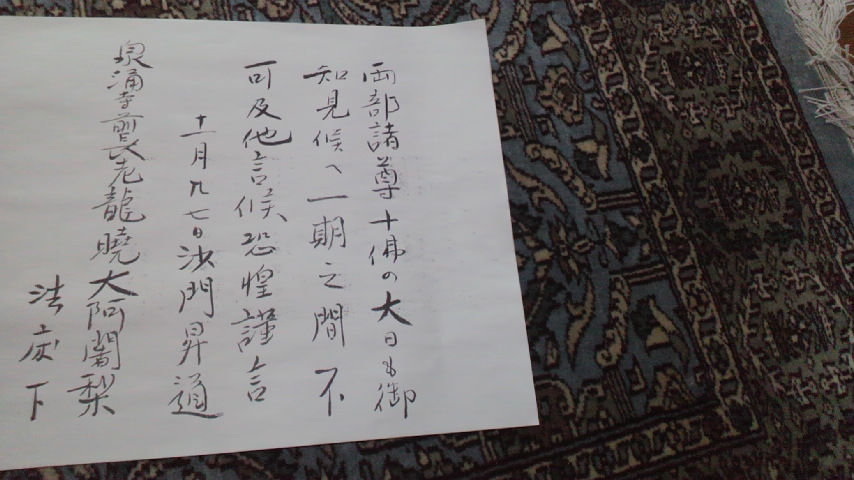 両部諸尊十佛の大日も御
知見候へ一期之間不
可及他言候恐惶謹言
十一月九七日沙門昇通
泉涌寺前長老龍暁大阿闍梨
法床下